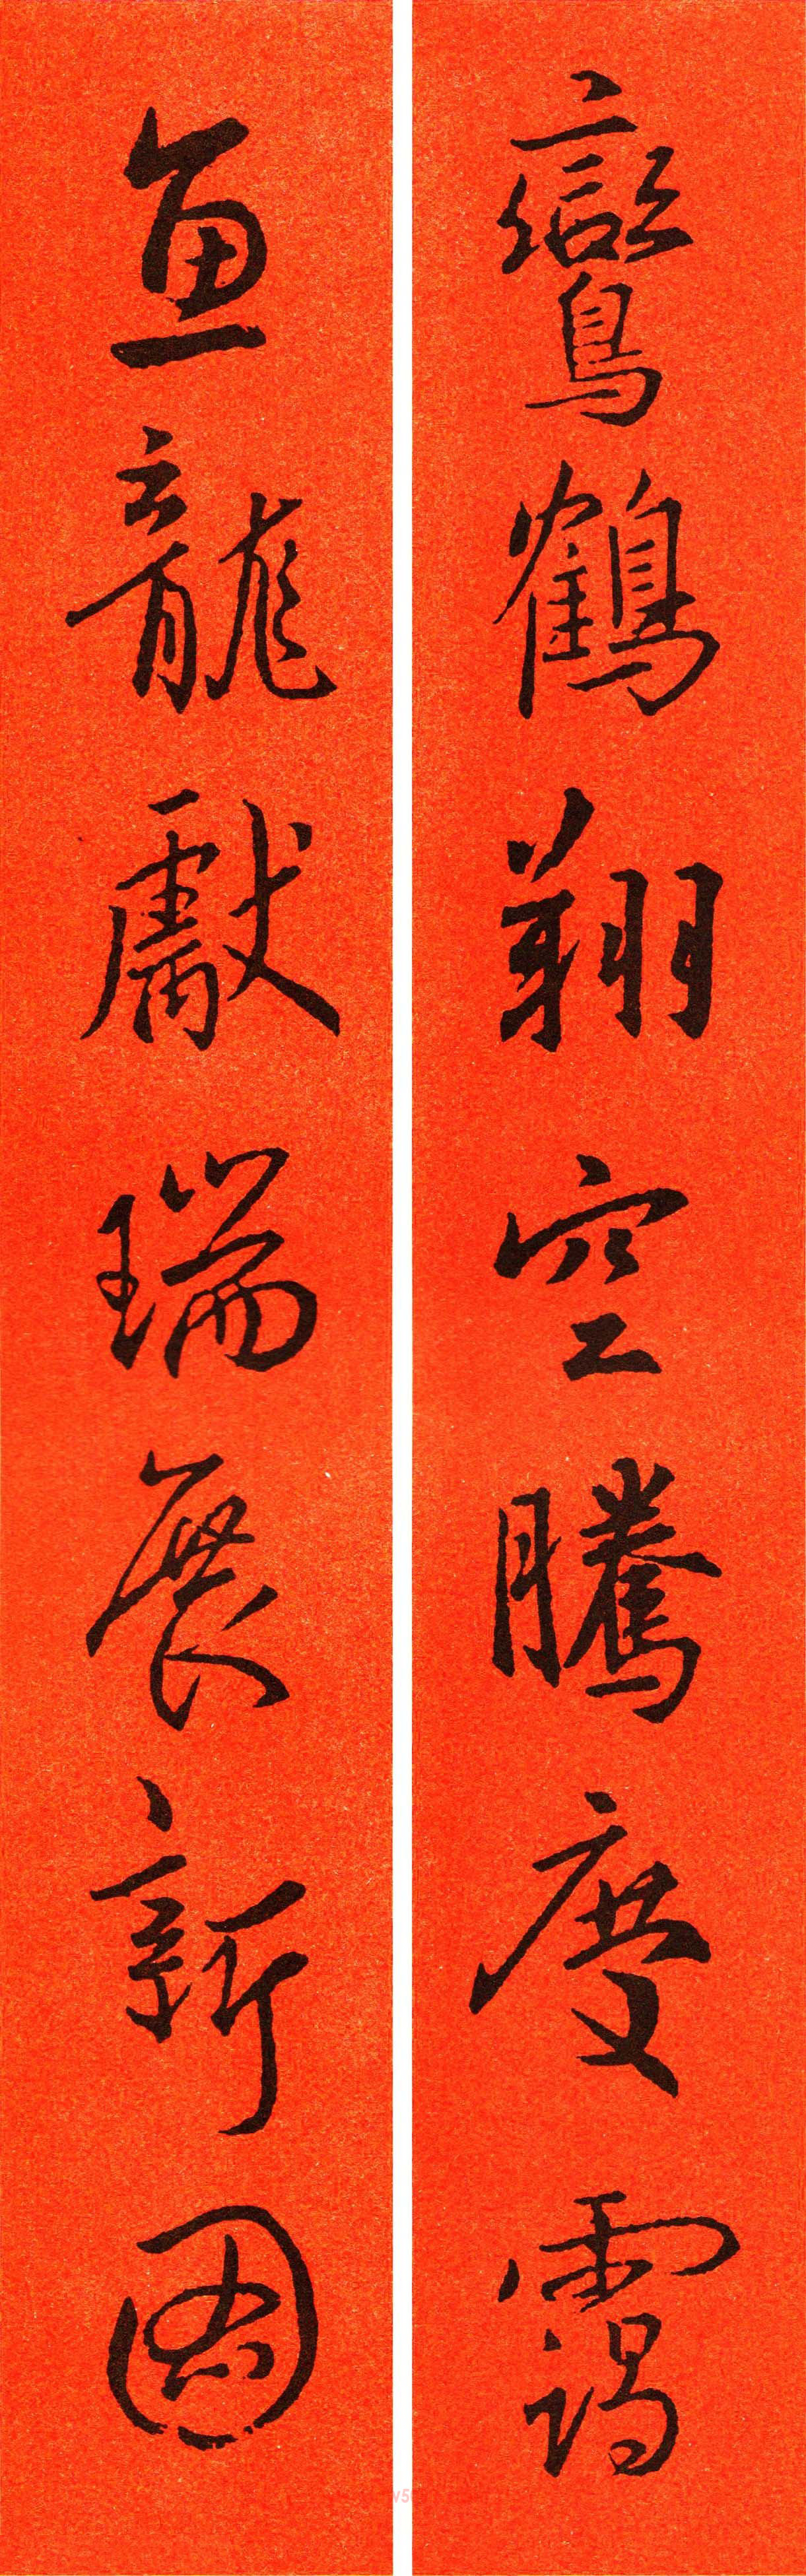 鸞鶴翔空騰慶靄
魚龍獻瑞展新圖